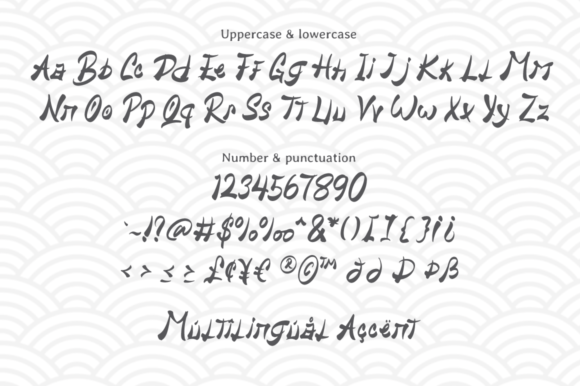 Uppercase & lowercase
Aa Bb Cc Dd Ee Ff Gg Hh Ii Jj Kk Ll Mm
Nn Oo Pp Qq Rr Ss Tt Uu Vv Ww Xx Yy Zz
Number & punctuation
1234567890
`~!?@#$%‰^&*()[]{}¡¿
<>≤≥£¢¥€®©™∂ð Ð Þß
Multilinguål Açcënt